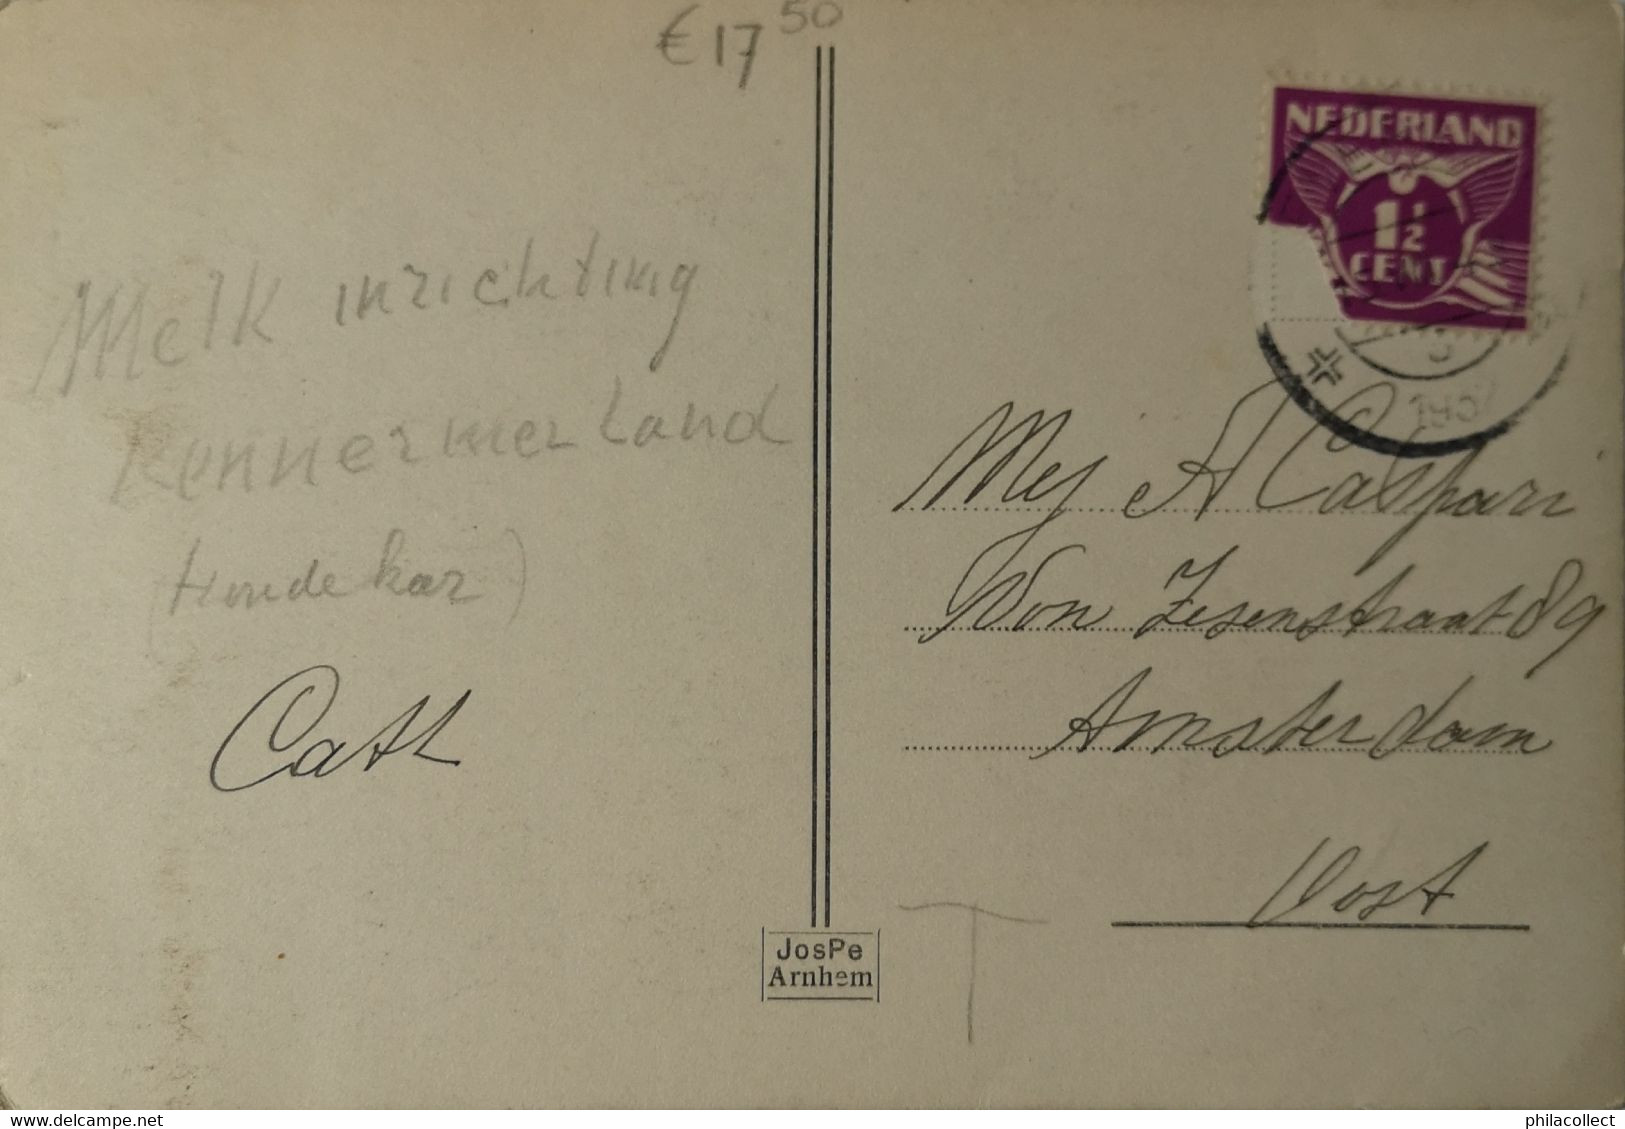 €17 50
NEDERLAND
1½
CENT
Melk inrichting
Kennermerland
(Hondekar)
Cath
Mej A Caspari
Von Zesenstraat 89
Amsterdam
Oost
T
JosPe
Arnhem
delcampe.net
philacollect